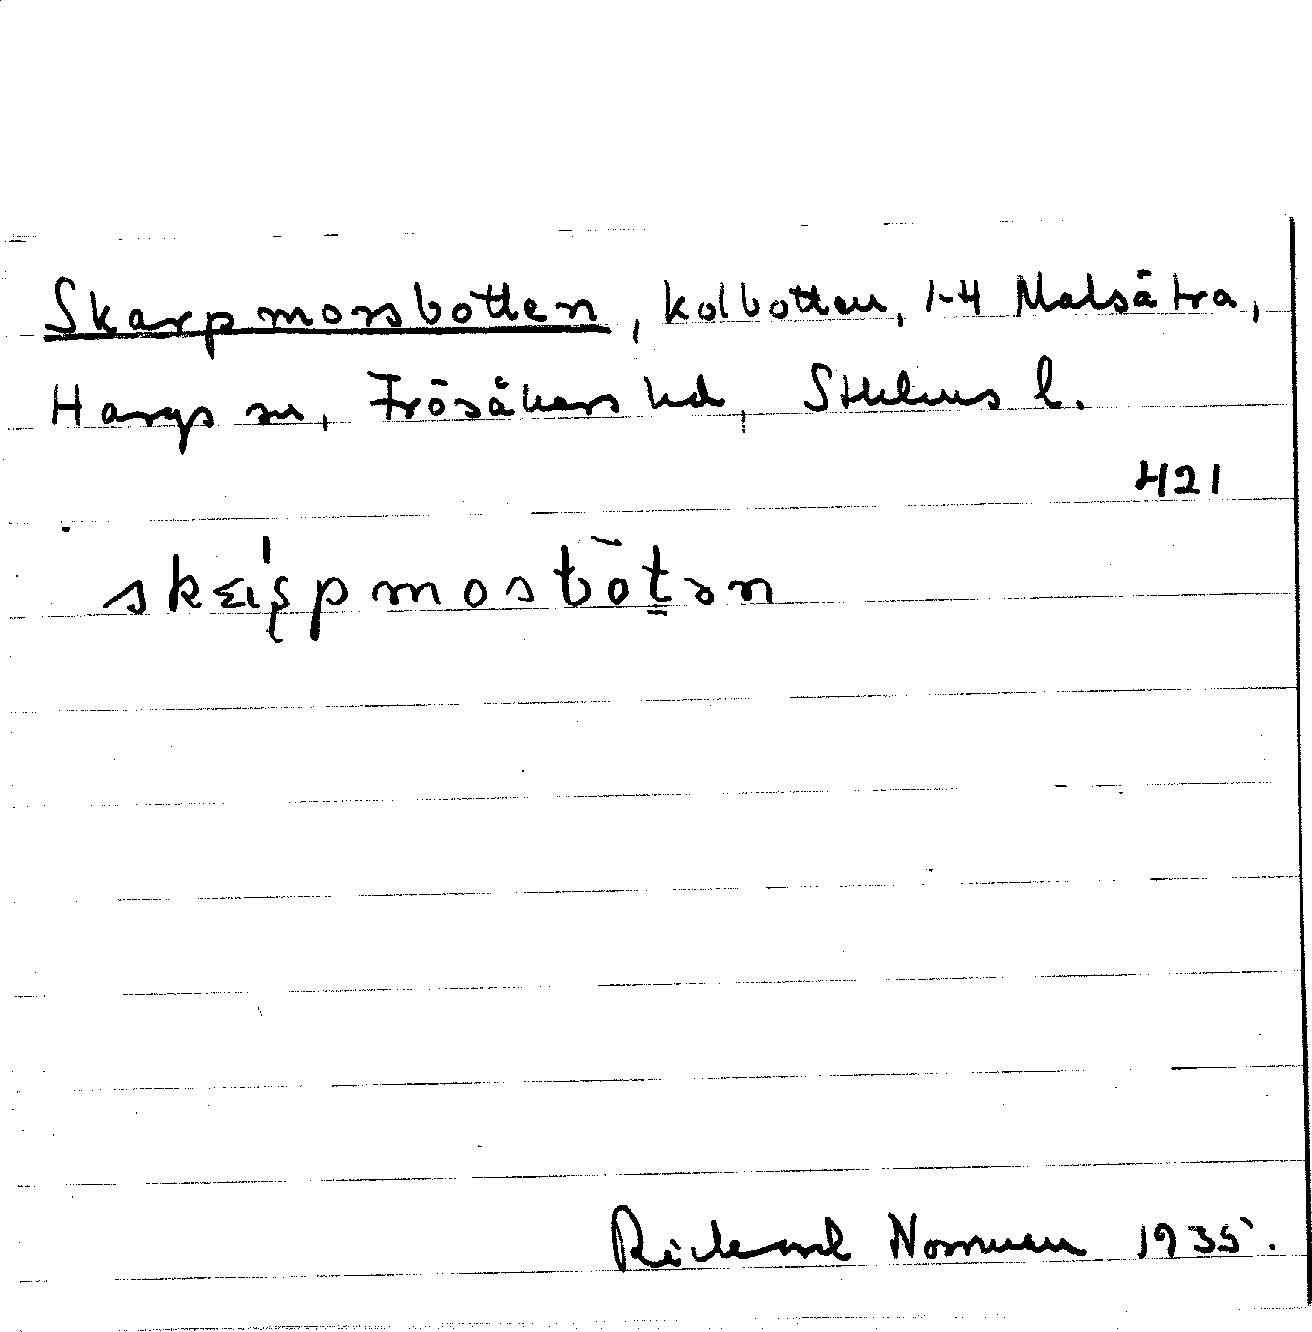 Skarpmorsbotten, kolbotten, 1-4 Malsätra,
Hargs sn, Frösåkers hd, Sthlms l.
421
Rickard Norrman 1935.